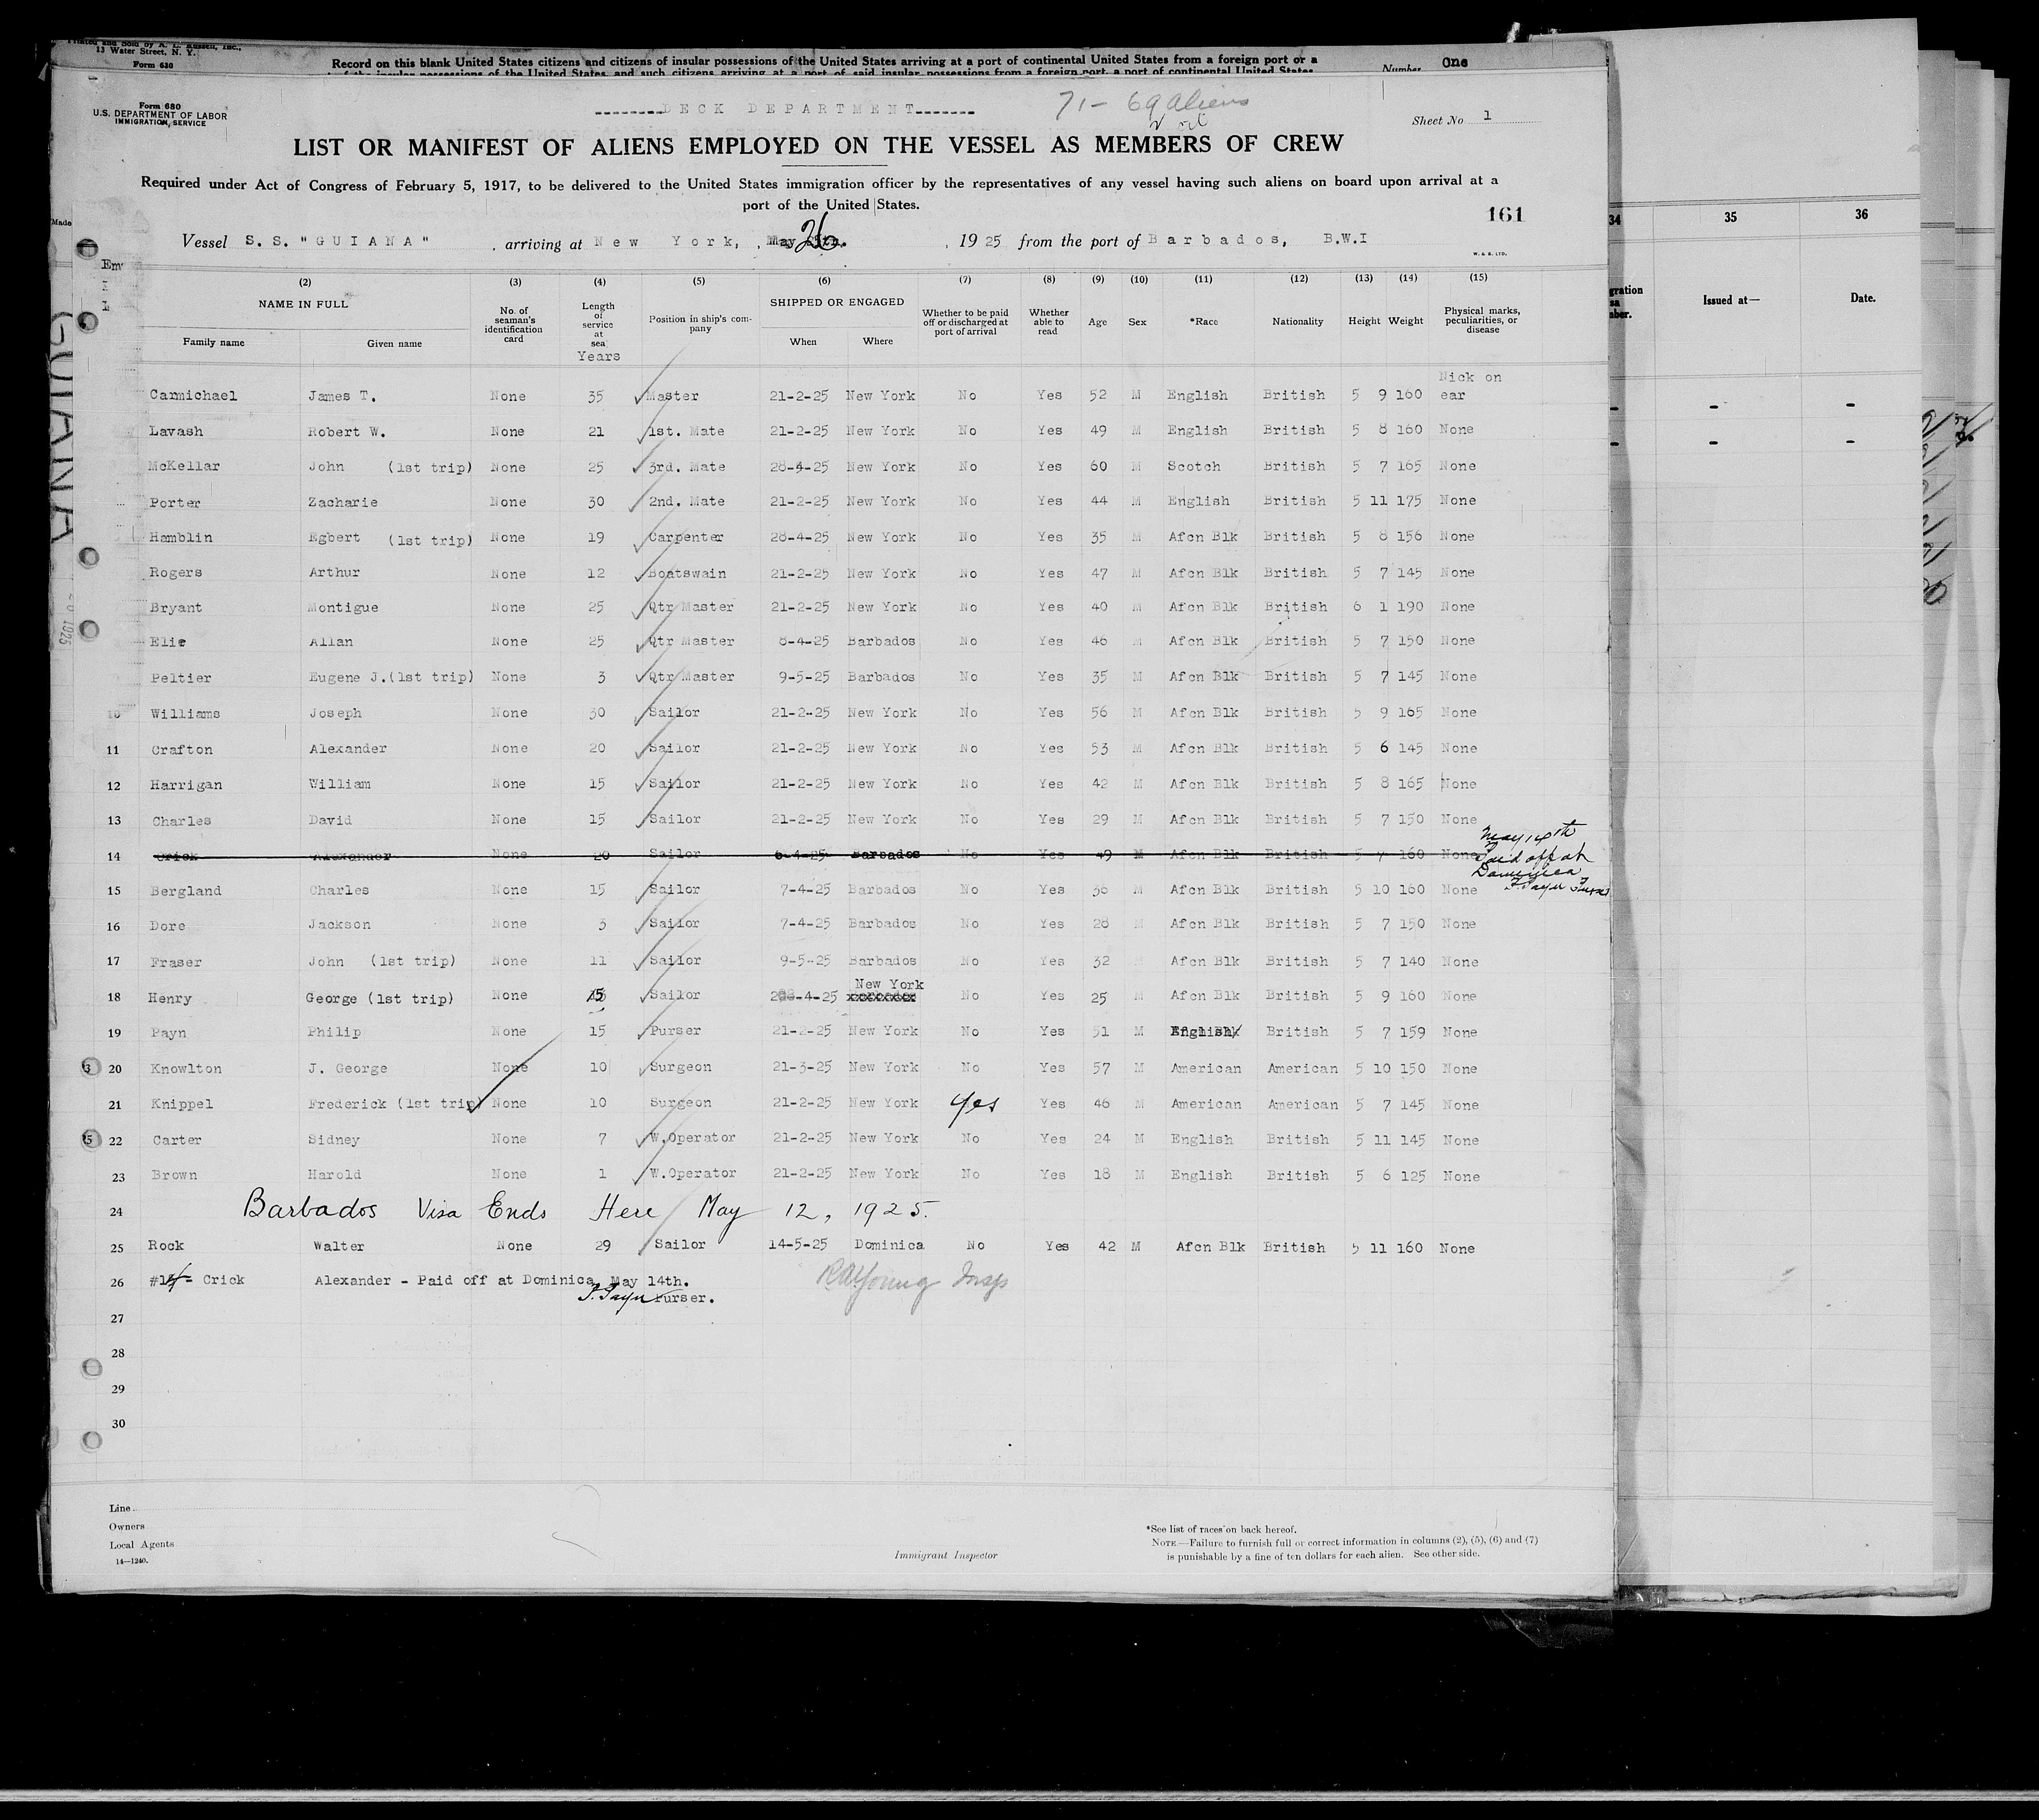 Printed and Sold by A. L. Russell, Inc.,
13 Water Street, N. Y.
Form 630
Record on this blank United States citizens and citizens of insular possessions of the United States arriving at a port of continental United States from a foreign port or a
of the insular possessions of the United States and such citizens arriving at a port of said insular possessions from a foreign port, a port of continental United States
Number One
Form 680
U.S. DEPARTMENT OF LABOR
IMMIGRATION SERVICE
-------DECK DEPARTMENT------
71- 69 aliens
Sheet No 1
LIST OR MANIFEST OF ALIENS EMPLOYED ON THE VESSEL AS MEMBERS OF CREW
Required under Act of Congress of February 5, 1917, to be delivered to the United States immigration officer by the representatives of any vessel having such aliens on board upon arrival at a
port of the United States.
161
Vessel S. S. "GUIANA" , arriving at New York, , May 26 , 1925 from the port of Barbados, B.W.I
W. & B. LTD.
(2) (3) (4) (5) (6) (7) (8) (9) (10) (11) (12) (13) (14) (15)
NAME IN FULL No. of seaman's identification card Length of service at sea Years Position in ship's company SHIPPED OR ENGAGED Whether to be paid off or discharged at port of arrival Whether able to read Age Sex *Race Nationality Height Weight Physical marks, peculiarities, or disease
Family name Given name When Where
Carmichael James T. None 35 Master 21-2-25 New York No Yes 52 M English British 5 9 160 Nick on ear
Lavash Robert W. None 21 1st. Mate 21-2-25 New York No Yes 49 M English British 5 8 160 None
McKellar John (1st trip) None 25 3rd. Mate 28-4-25 New York No Yes 60 M Scotch British 5 7 165 None
Porter Zacharie None 30 2nd. Mate 21-2-25 New York No Yes 44 M English British 5 11 175 None
Hamblin Egbert (1st trip) None 19 Carpenter 28-4-25 New York No Yes 35 M Afcn Blk British 5 8 156 None
Rogers Arthur None 12 Boatswain 21-2-25 New York No Yes 47 M Afcn Blk British 5 7 145 None
Bryant Montigue None 25 Qtr Master 21-2-25 New York No Yes 40 M Afcn Blk British 6 1 190 None
Elie Allan None 25 Qtr Master 8-4-25 Barbados No Yes 46 M Afcn Blk British 5 7 150 None
Peltier Eugene J.(1st trip) None 3 Qtr Master 9-5-25 Barbados No Yes 35 M Afcn Blk British 5 7 145 None
10 Williams Joseph None 30 Sailor 21-2-25 New York No Yes 56 M Afcn Blk British 5 9 165 None
11 Crafton Alexander None 20 Sailor 21-2-25 New York No Yes 53 M Afcn Blk British 5 6 145 None
12 Harrigan William None 15 Sailor 21-2-25 New York No Yes 42 M Afcn Blk British 5 8 165 None
13 Charles David None 15 Sailor 21-2-25 New York No Yes 29 M Afcn Blk British 5 7 150 None
14 Crick Alexander None 20 Sailor 6-4-25 Barbados No Yes 49 M Afcn Blk British 5 7 160 None
May 14th
Paid off at
Dominica
P. Payn Purser
15 Bergland Charles None 15 Sailor 7-4-25 Barbados No Yes 36 M Afcn Blk British 5 10 160 None
16 Dore Jackson None 3 Sailor 7-4-25 Barbados No Yes 28 M Afcn Blk British 5 7 150 None
17 Fraser John (1st trip) None 11 Sailor 9-5-25 Barbados No Yes 32 M Afcn Blk British 5 7 140 None
18 Henry George (1st trip) None 5 Sailor 28-4-25 New York No Yes 25 M Afcn Blk British 5 9 160 None
19 Payn Philip None 15 Purser 21-2-25 New York No Yes 51 M English British 5 7 159 None
20 Knowlton J. George None 10 Surgeon 21-3-25 New York No Yes 57 M American American 5 10 150 None
21 Knippel Frederick (1st trip) None 10 Surgeon 21-2-25 New York Yes Yes 46 M American American 5 7 145 None
22 Carter Sidney None 7 W.Operator 21-2-25 New York No Yes 24 M English British 5 11 145 None
23 Brown Harold None 1 W.Operator 21-2-25 New York No Yes 18 M English British 5 6 125 None
24 Barbados Visa Ends Here May 12, 1925.
25 Rock Walter None 29 Sailor 14-5-25 Dominica No Yes 42 M Afcn Blk British 5 11 160 None
26 #14- Crick Alexander - Paid off at Dominica May 14th.
P. Payn Purser.
RA Young Insp
27
28
29
30
Line
Owners
Local Agents
14-1240.
Immigrant Inspector
*See list of races on back hereof.
NOTE.—Failure to furnish full or correct information in columns (2), (5), (6) and (7)
is punishable by a fine of ten dollars for each alien. See other side.
Made
GUIANA
34 35 36
Issued at— Date.